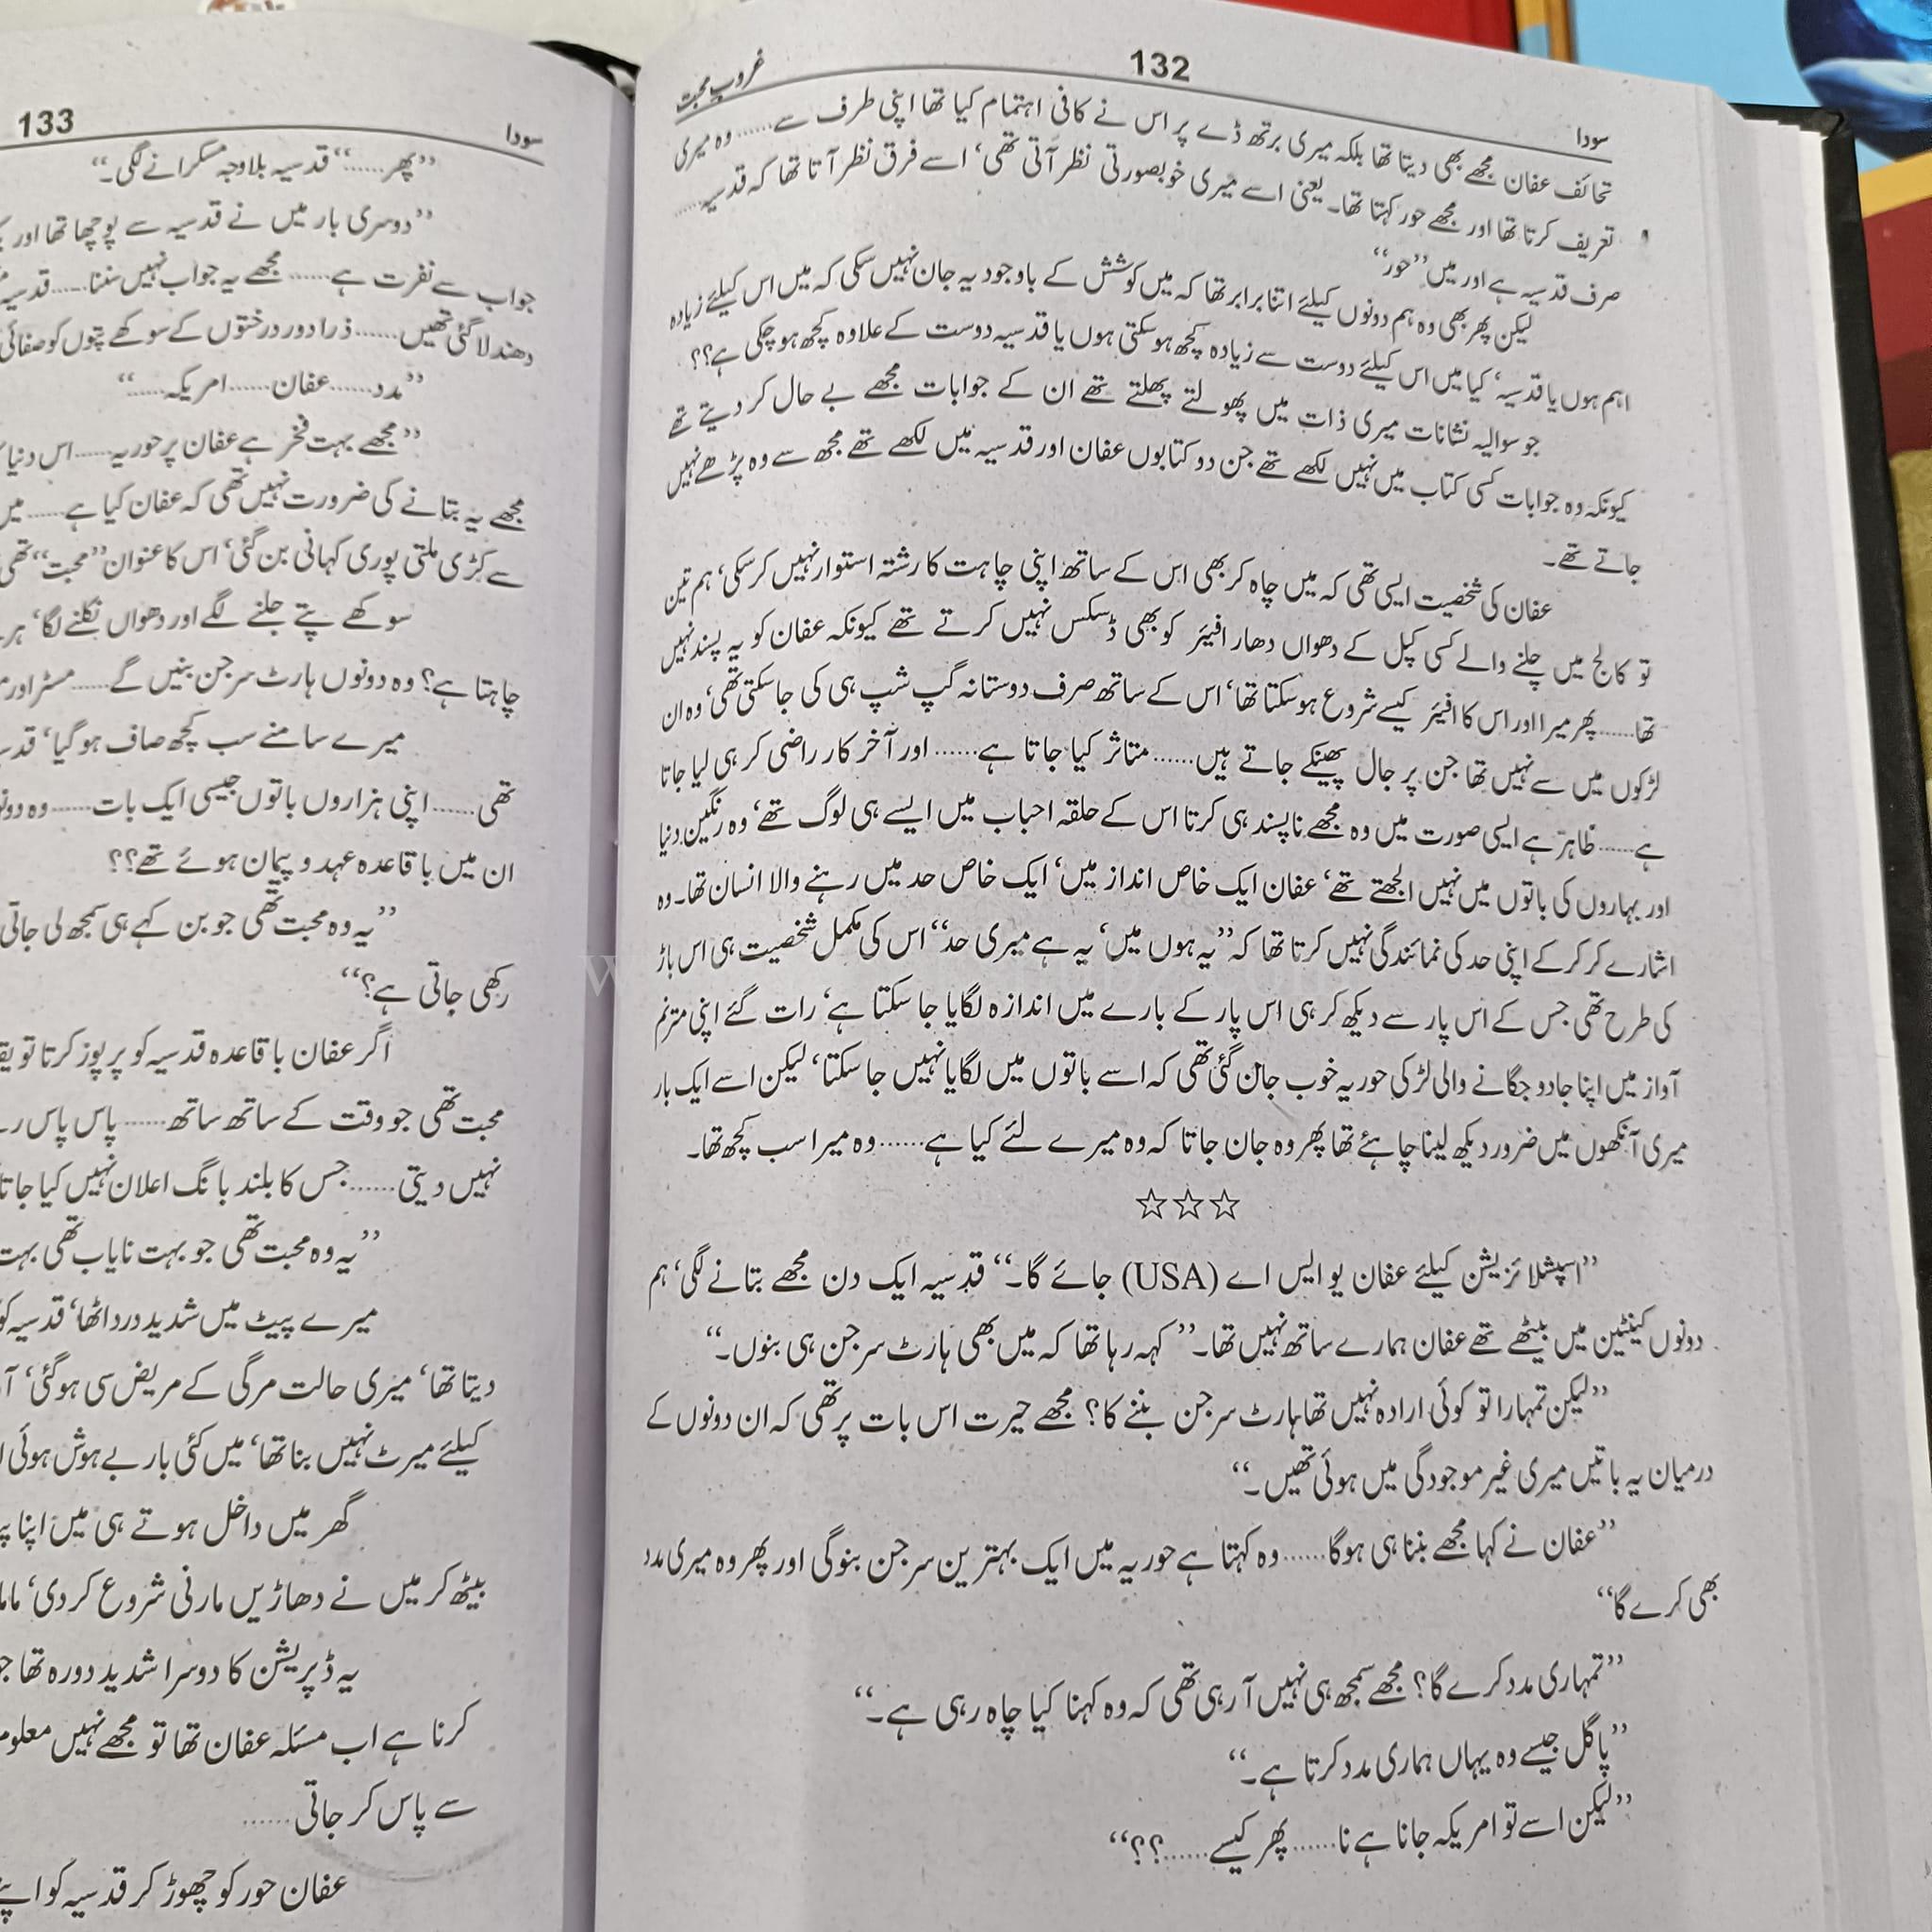 غروبِ محبت
132
سودا
تحائف عفان مجھے بھی دیتا تھا بلکہ میری برتھ ڈے پر اس نے کافی اہتمام کیا تھا اپنی طرف سے......وہ میری
تعریف کرتا تھا اور مجھے حور کہتا تھا۔ یعنی اسے میری خوبصورتی نظر آتی تھی‘ اسے فرق نظر آتا تھا کہ قدسیہ......
صرف قدسیہ ہے اور میں ’’حور‘‘
لیکن پھر بھی وہ ہم دونوں کیلئے اتنا برابر تھا کہ میں کوشش کے باوجود یہ جان نہیں سکی کہ میں اس کیلئے زیادہ
اہم ہوں یا قدسیہ‘ کیا میں اس کیلئے دوست سے زیادہ کچھ ہو سکتی ہوں یا قدسیہ دوست کے علاوہ کچھ ہو چکی ہے؟؟
جو سوالیہ نشانات میری ذات میں پھولتے پھلتے تھے ان کے جوابات مجھے بے حال کر دیتے تھے
کیونکہ وہ جوابات کسی کتاب میں نہیں لکھے تھے جن دو کتابوں عفان اور قدسیہ میں لکھے تھے مجھ سے وہ پڑھے نہیں
جاتے تھے۔
عفان کی شخصیت ایسی تھی کہ میں چاہ کر بھی اس کے ساتھ اپنی چاہت کا رشتہ استوار نہیں کر سکی‘ ہم تین
تو کالج میں چلنے والے کسی کپل کے دھواں دھار افیئر کو بھی ڈسکس نہیں کرتے تھے کیونکہ عفان کو یہ پسند نہیں
تھا......پھر میرا اور اس کا افیئر کیسے شروع ہو سکتا تھا‘ اس کے ساتھ صرف دوستانہ گپ شپ ہی کی جا سکتی تھی‘ وہ ان
لڑکوں میں سے نہیں تھا جن پر جال پھینکے جاتے ہیں......متاثر کیا جاتا ہے......اور آخر کار راضی کر ہی لیا جاتا
ہے......ظاہر ہے ایسی صورت میں وہ مجھے ناپسند ہی کرتا اس کے حلقہ احباب میں ایسے ہی لوگ تھے‘ وہ رنگین دنیا
اور بہاروں کی باتوں میں نہیں الجھتے تھے‘ عفان ایک خاص انداز میں‘ ایک خاص حد میں رہنے والا انسان تھا۔ وہ
اشارے کر کر کے اپنی حد کی نمائندگی نہیں کرتا تھا کہ ’’یہ ہوں میں‘ یہ ہے میری حد‘‘ اس کی مکمل شخصیت ہی اس باڑ
کی طرح تھی جس کے اس پار سے دیکھ کر ہی اس پار کے بارے میں اندازہ لگایا جا سکتا ہے‘ رات گئے اپنی مترنم
آواز میں اپنا جادو جگانے والی لڑکی حوریہ خوب جان گئی تھی کہ اسے باتوں میں لگایا نہیں جا سکتا‘ لیکن اسے ایک بار
میری آنکھوں میں ضرور دیکھ لینا چاہئے تھا پھر وہ جان جاتا کہ وہ میرے لئے کیا ہے......وہ میرا سب کچھ تھا۔
☆☆☆
’’اسپشلائزیشن کیلئے عفان یو ایس اے (USA) جائے گا۔‘‘ قدسیہ ایک دن مجھے بتانے لگی‘ ہم
دونوں کینٹین میں بیٹھے تھے عفان ہمارے ساتھ نہیں تھا۔ ’’کہہ رہا تھا کہ میں بھی ہارٹ سرجن ہی بنوں۔‘‘
’’لیکن تمہارا تو کوئی ارادہ نہیں تھا ہارٹ سرجن بننے کا؟ مجھے حیرت اس بات پر تھی کہ ان دونوں کے
درمیان یہ باتیں میری غیر موجودگی میں ہوئی تھیں۔‘‘
’’عفان نے کہا مجھے بننا ہی ہوگا......وہ کہتا ہے حوریہ میں ایک بہترین سرجن بنوگی اور پھر وہ میری مدد
بھی کرے گا‘‘
’’تمہاری مدد کرے گا؟ مجھے سمجھ ہی نہیں آ رہی تھی کہ وہ کہنا کیا چاہ رہی ہے۔‘‘
’’پاگل جیسے وہ یہاں ہماری مدد کرتا ہے۔‘‘
’’لیکن اسے تو امریکہ جانا ہے نا......پھر کیسے......؟؟‘‘
133
سودا
’’پھر......‘‘ قدسیہ بلاوجہ مسکرانے لگی۔‘‘
’’دوسری بار میں نے قدسیہ سے پوچھا تھا اور
جواب سے نفرت ہے......مجھے یہ جواب نہیں سننا......قدسیہ
دھندلا گئی تھیں......ذرا دور درختوں کے سوکھے پتوں کو صفائی
’’مدد......عفان......امریکہ......‘‘
’’مجھے بہت فخر ہے عفان پر حوریہ......اس دنیا
مجھے یہ بتانے کی ضرورت نہیں تھی کہ عفان کیا ہے......میں
سے کڑی ملتی پوری کہانی بن گئی‘ اس کا عنوان ’’محبت‘‘ تھی
سوکھے پتے جلنے لگے اور دھواں نکلنے لگا‘ ہر
چاہتا ہے؟ وہ دونوں ہارٹ سرجن بنیں گے......مسٹر اور
میرے سامنے سب کچھ صاف ہو گیا‘
تھی......اپنی ہزاروں باتوں جیسی ایک بات......وہ
ان میں باقاعدہ عہد و پیمان ہوئے تھے؟؟
’’یہ وہ محبت تھی جو بن کہے ہی سمجھ لی جاتی
رکھی جاتی ہے؟‘‘
اگر عفان باقاعدہ قدسیہ کو پرپوز کرتا تو
محبت تھی جو وقت کے ساتھ ساتھ......پاس پاس
نہیں دیتی......جس کا بلند بانگ اعلان نہیں کیا جاتا
’’یہ وہ محبت تھی جو بہت نایاب تھی بہت
میرے پیٹ میں شدید درد اٹھا‘ قدسیہ
دیتا تھا‘ میری حالت مرگی کے مریض سی ہو گئی‘
کیلئے میرٹ نہیں بنا تھا‘ میں کئی بار بے ہوش ہوئی
گھر میں داخل ہوتے ہی میں اپنا
بیٹھ کر میں نے دھاڑیں مارنی شروع کر دی‘
یہ ڈپریشن کا دوسرا شدید دورہ تھا
کرنا ہے اب مسئلہ عفان تھا تو مجھے نہیں
سے پاس کر جاتی......
عفان حور کو چھوڑ کر قدسیہ کو